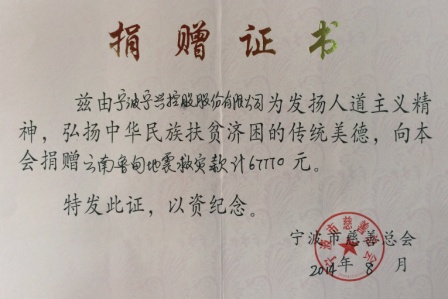 捐赠证书
兹由宁波宁兴控股股份有限公司为发扬人道主义精
神，弘扬中华民族扶贫济困的传统美德，向本
会捐赠云南鲁甸地震救灾款计67770元。
特发此证，以资纪念。
宁波市慈善总会
2014年8月